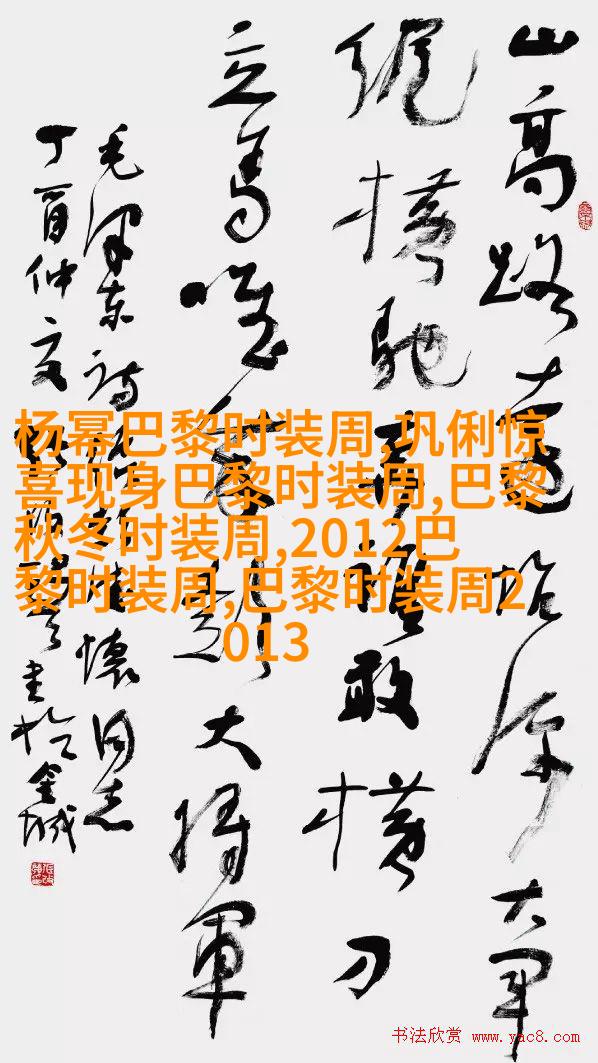 山高路遠坑深大军
纵橫驰奔誰敢橫刀
立马唯吾彭大將軍
毛泽东诗 懷同志
丁酉仲夏 书於金城
杨幂巴黎时装周,巩俐惊
喜现身巴黎时装周,巴黎
秋冬时装周,2012巴
黎时装周,巴黎时装周2
013
书法欣赏 www.yac8.com